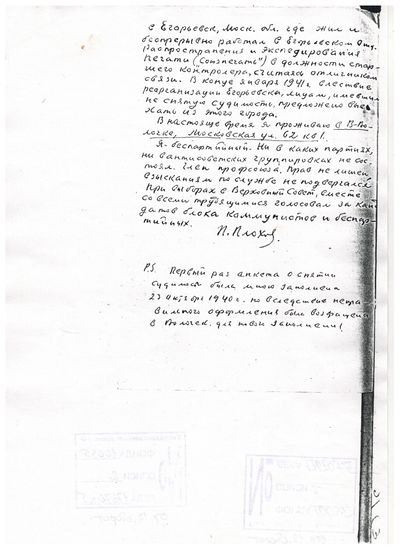 г Егорьевск, Моск. обл. где жил и
беспрерывно работал в Егорьевском
Распространения и Экспедирования
Печати ("Союзпечать") в должности стар-
шего контролера, считаясь отличником
связи. В конце января 1941 г вследствие
реорганизации Егорьевска, лицам, имевшим
не снятую судимость, предложено вые-
хать из этого города.
В настоящее время я проживаю в В-Во-
лочке, Московская ул. 62 кв 1.
Я - беспартийный. Ни в каких партиях,
ни антисоветских группировках не сос-
тоял. Член профсоюза. Прав не лишен.
Взысканиям по службе не подвергался
При выборах в Верховный Совет, вместе
со всеми трудящимися голосовал за канди-
датов блока коммунистов и беспар-
тийных.
П. Плохов.
P.S. Первый раз анкета о снятии
судимости была мною заполнена
23 октября 1940 г. но вследствие непра-
вильного оформления была возвращена
в Волочек. для